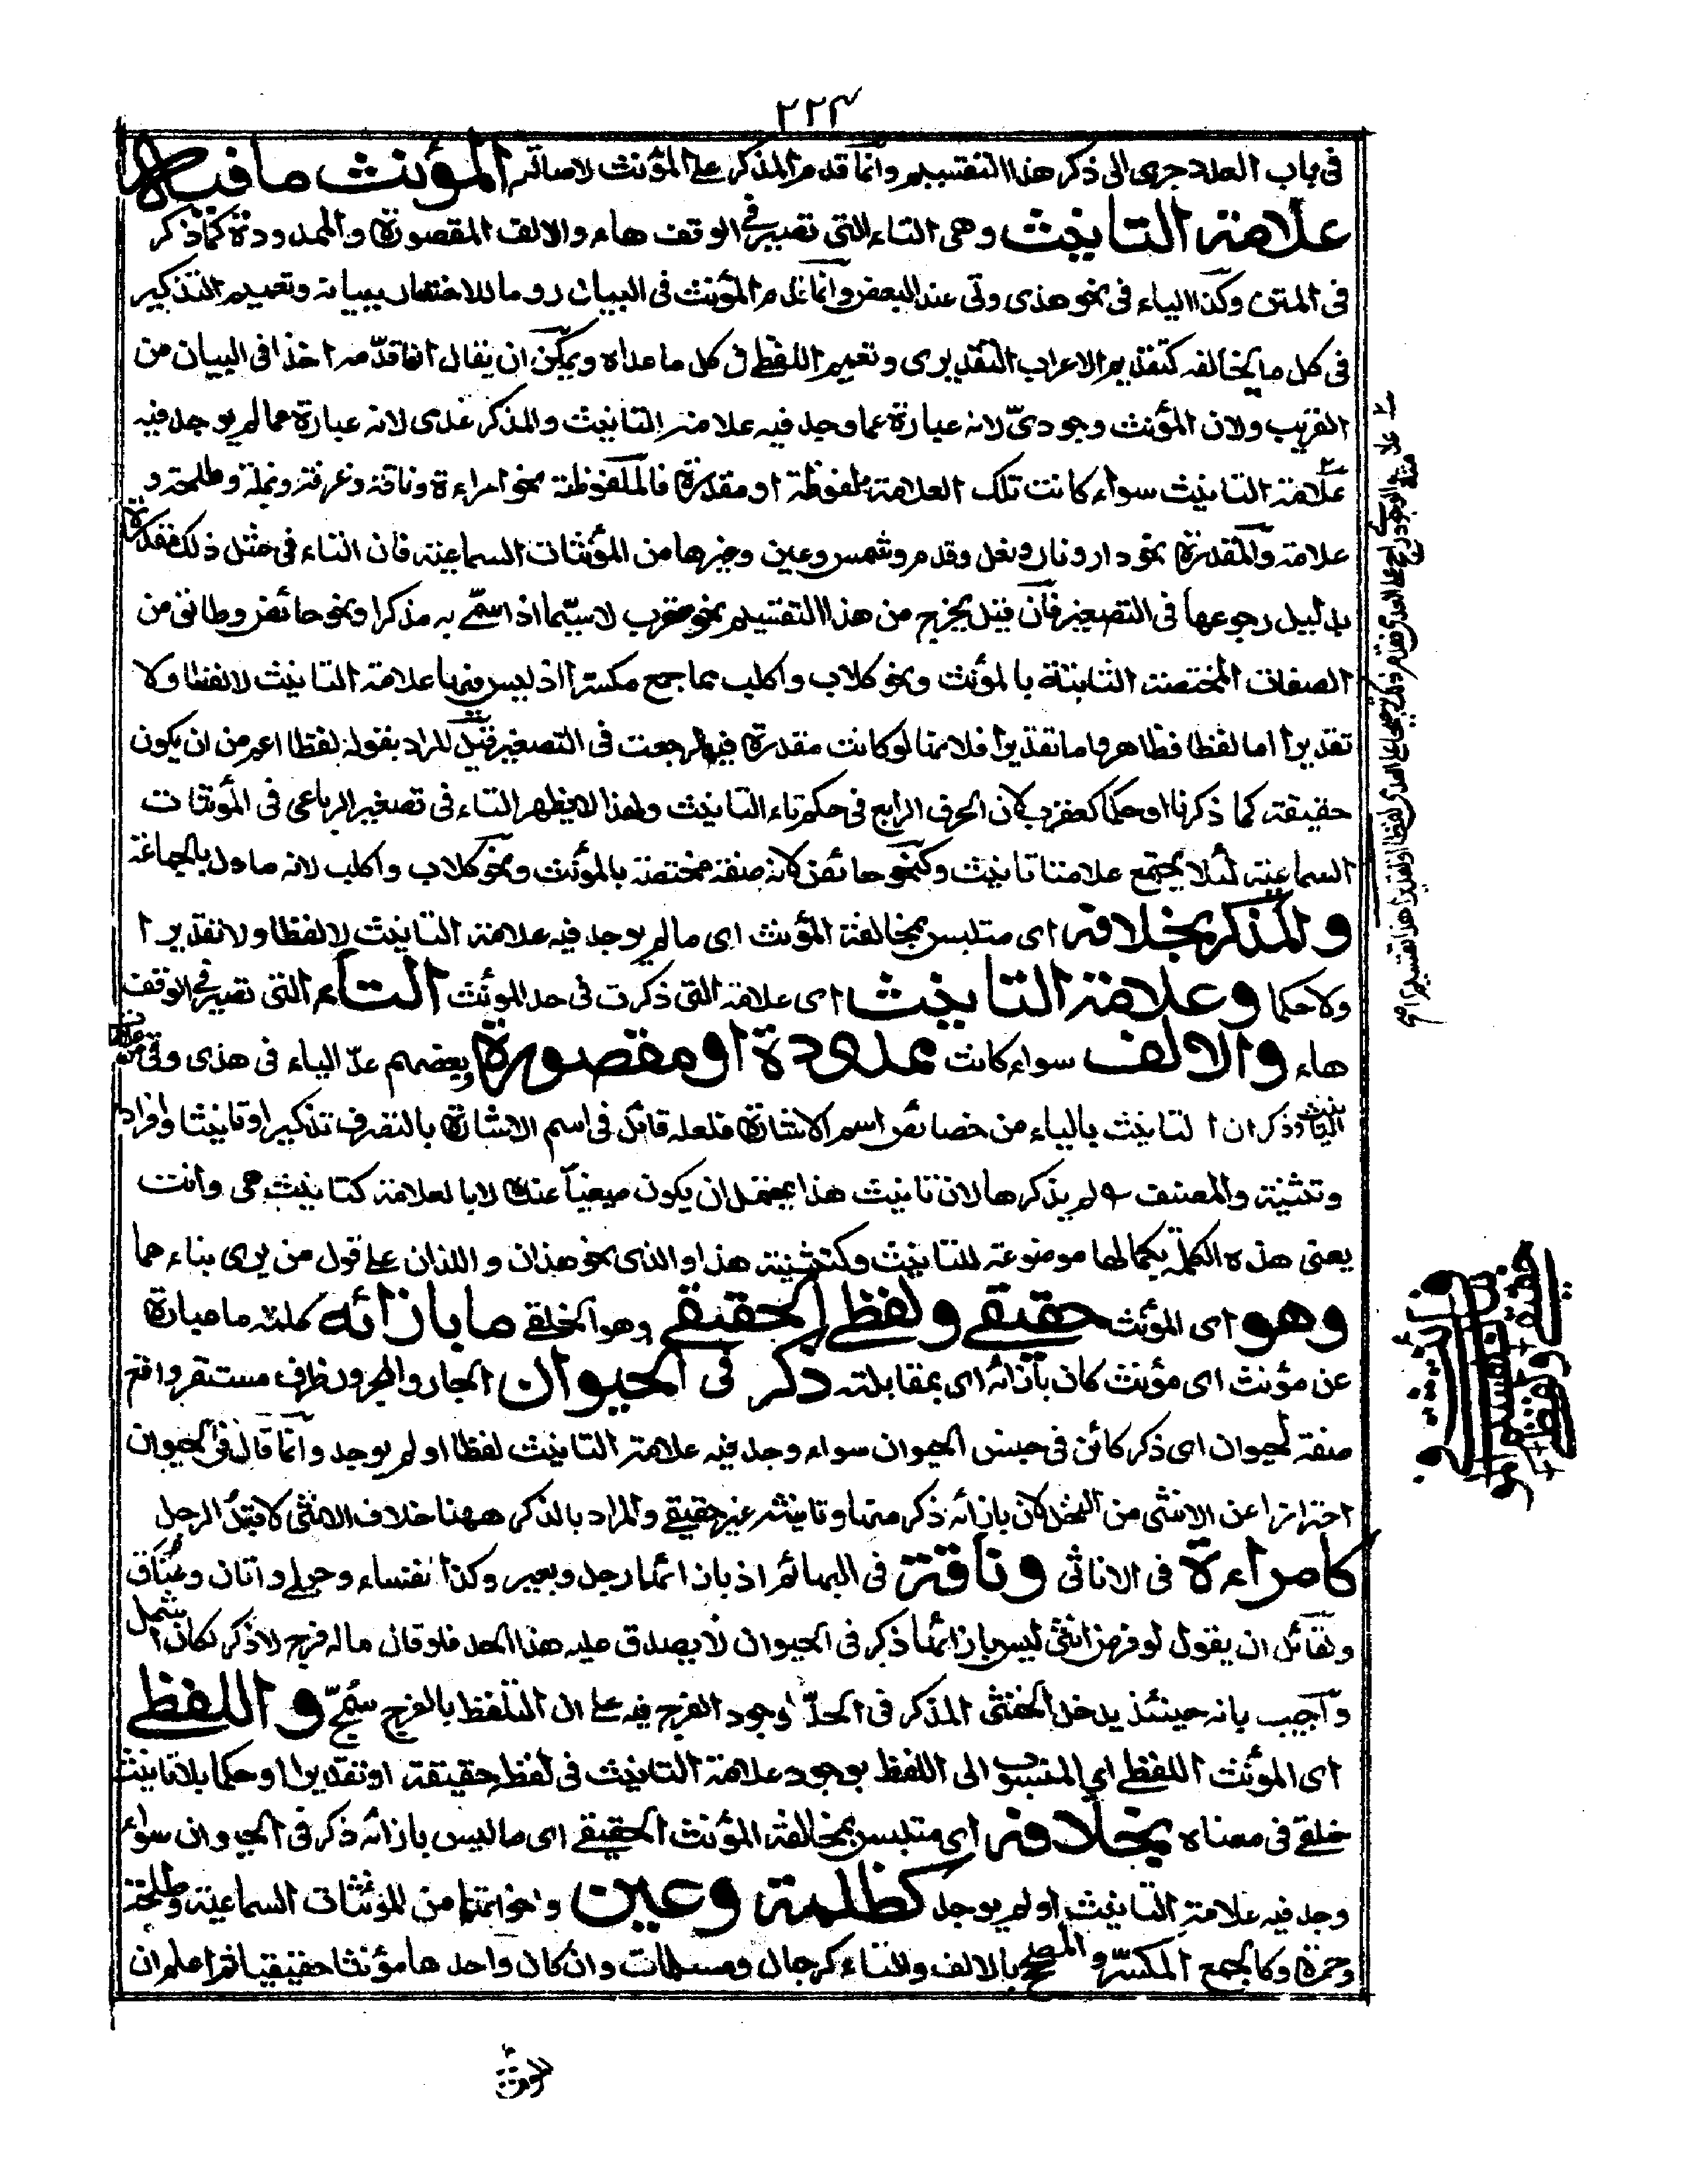 ٢٢٤
في باب العدد جرى الى ذكر هذا التقسيم وانما قدم المذكر على المؤنث لاصالته المؤنث ما فيه
علامة التانيث وهى التاء التى تصير فى الوقف هاء والالف المقصورة والممدودة كما ذكر
فى المتن وكذا الياء فى نحو هذى وتى عند البعض وانما قدم المؤنث فى البيان روما للاختصار ببيانه وتعميم التذكير
فى كل ما يخالفه كتقديم الاعراب التقديرى وتعميم اللفظى فى كل ما عداه ويمكن ان يقال انما قدمه اخذا فى البيان من
القريب ولان المؤنث وجودىّ لانه عبارة عما وجد فيه علامة التانيث والمذكر عدمى لانه عبارة عما لم يوجد فيه
علامة التانيث سواء كانت تلك العلامة ملفوظة او مقدرة فالملفوظة نحو امراءة وناقة وغرفة ونملة وطلحة و
علامة والمقدرة نحو دار ونار ونعل وقدم وشمس وعين وغيرها من المؤنثات السماعية فان التاء فى مثل ذلك مقدرة
بدليل رجوعها فى التصغير فان قيل يخرج من هذا التقسيم نحو عقرب لا سيّما اذا سمّى به مذكرا ونحو حائض وطالق من
الصفات المختصة الثابتة بالمؤنث ونحو كلاب واكلب مما جمع مكسرا اذ ليس فيها علامة التانيث لا لفظا ولا
تقديرا اما لفظا فظاهر واما تقديرا فلانها لو كانت مقدرة فيها لرجعت فى التصغير قيل المراد بقوله لفظا اعم من ان يكون
حقيقة كما ذكرنا او حكما كعقرب لان الحرف الرابع فى حكم تاء التانيث ولهذا لا يظهر التاء فى تصغير الرباعى فى المؤنثات
السماعية لئلا يجتمع علامتا تانيث وكنحو حائض لانه صفة مختصة بالمؤنث ونحو كلاب واكلب لانه ماول بالجماعة
والمذكر بخلافه اى متلبس بمخالفة المؤنث اى ما لم يوجد فيه علامة التانيث لا لفظا ولا تقديرا
ولا حكما وعلامة التانيث اى علامة التى ذكرت فى حد المونث التاء التى تصير فى الوقف
هاء والالف سواء كانت ممدودة او مقصورة وبعضهم عدّ الياء فى هذى وتى من علامة
التانيث وذكر ان التانيث بالياء من خصائص اسم الاشارة فلعله قائل فى اسم الاشارة بالتصرف تذكيرا وتانيثا وافرادا
وتثنية والمصنف لم يذكرها لان تانيث هذا يحتمل ان يكون صيغيا عنده لا بالعلامة كتانيث هى وانت
يعنى هذه الكلمة بكمالها موضوعة للتانيث وكتثنية هذا والذى نحو هذان واللذان على قول من يرى بناءهما
وهو اى المؤنث حقيقى ولفظى الحقيقى وهو الخلقى ما بازائه كلمة ما عبارة
عن مؤنث اى مؤنث كان بازائه اى بمقابلته ذكر فى الحيوان الجار والمجرور ظرف مستقر واقع
صفة لحيوان اى ذكر كائن فى جنس الحيوان سواء وجد فيه علامة التانيث لفظا او لم يوجد وانما قال فى الحيوان
احترازا عن الانثى من النخل لان بازائه ذكر منها وتانيثه غير حقيقى والمراد بالذكر ههنا خلاف الانثى لا قبل الرجل
كامراءة فى الاناثى وناقة فى البهائم اذ بازائها رجل وبعير وكذا نفساء وحبلى واتان وعناق
ولقائل ان يقول لو فرض انثى ليس بازائها ذكر فى الحيوان لا يصدق عليه هذا الحد فلو قال ما له فرج لا ذكر لكان اشمل
واجيب بانه حينئذ يدخل الخنثى المذكر فى الحدّ لوجود الفرج فيه على ان التلفظ بالفرج سمجّ واللفظى
اى المؤنث اللفظى اى المنسوب الى اللفظ بوجود علامة التانيث فى لفظه حقيقة او تقديرا او حكما بلا تانيث
خلقى فى معناه بخلافه اى متلبس بمخالفة المؤنث الحقيقى اى ما ليس بازائه ذكر فى الحيوان سواء
وجد فيه علامة التانيث او لم يوجد كظلمة وعين واخواتها من المؤنثات السماعية وطلحة
وحمزة وكالجمع المكسّر والمصحح بالالف والتاء كرجال ومسلمات وان كان واحدها مؤنثا حقيقيا ثم اعلم ان
المؤنث